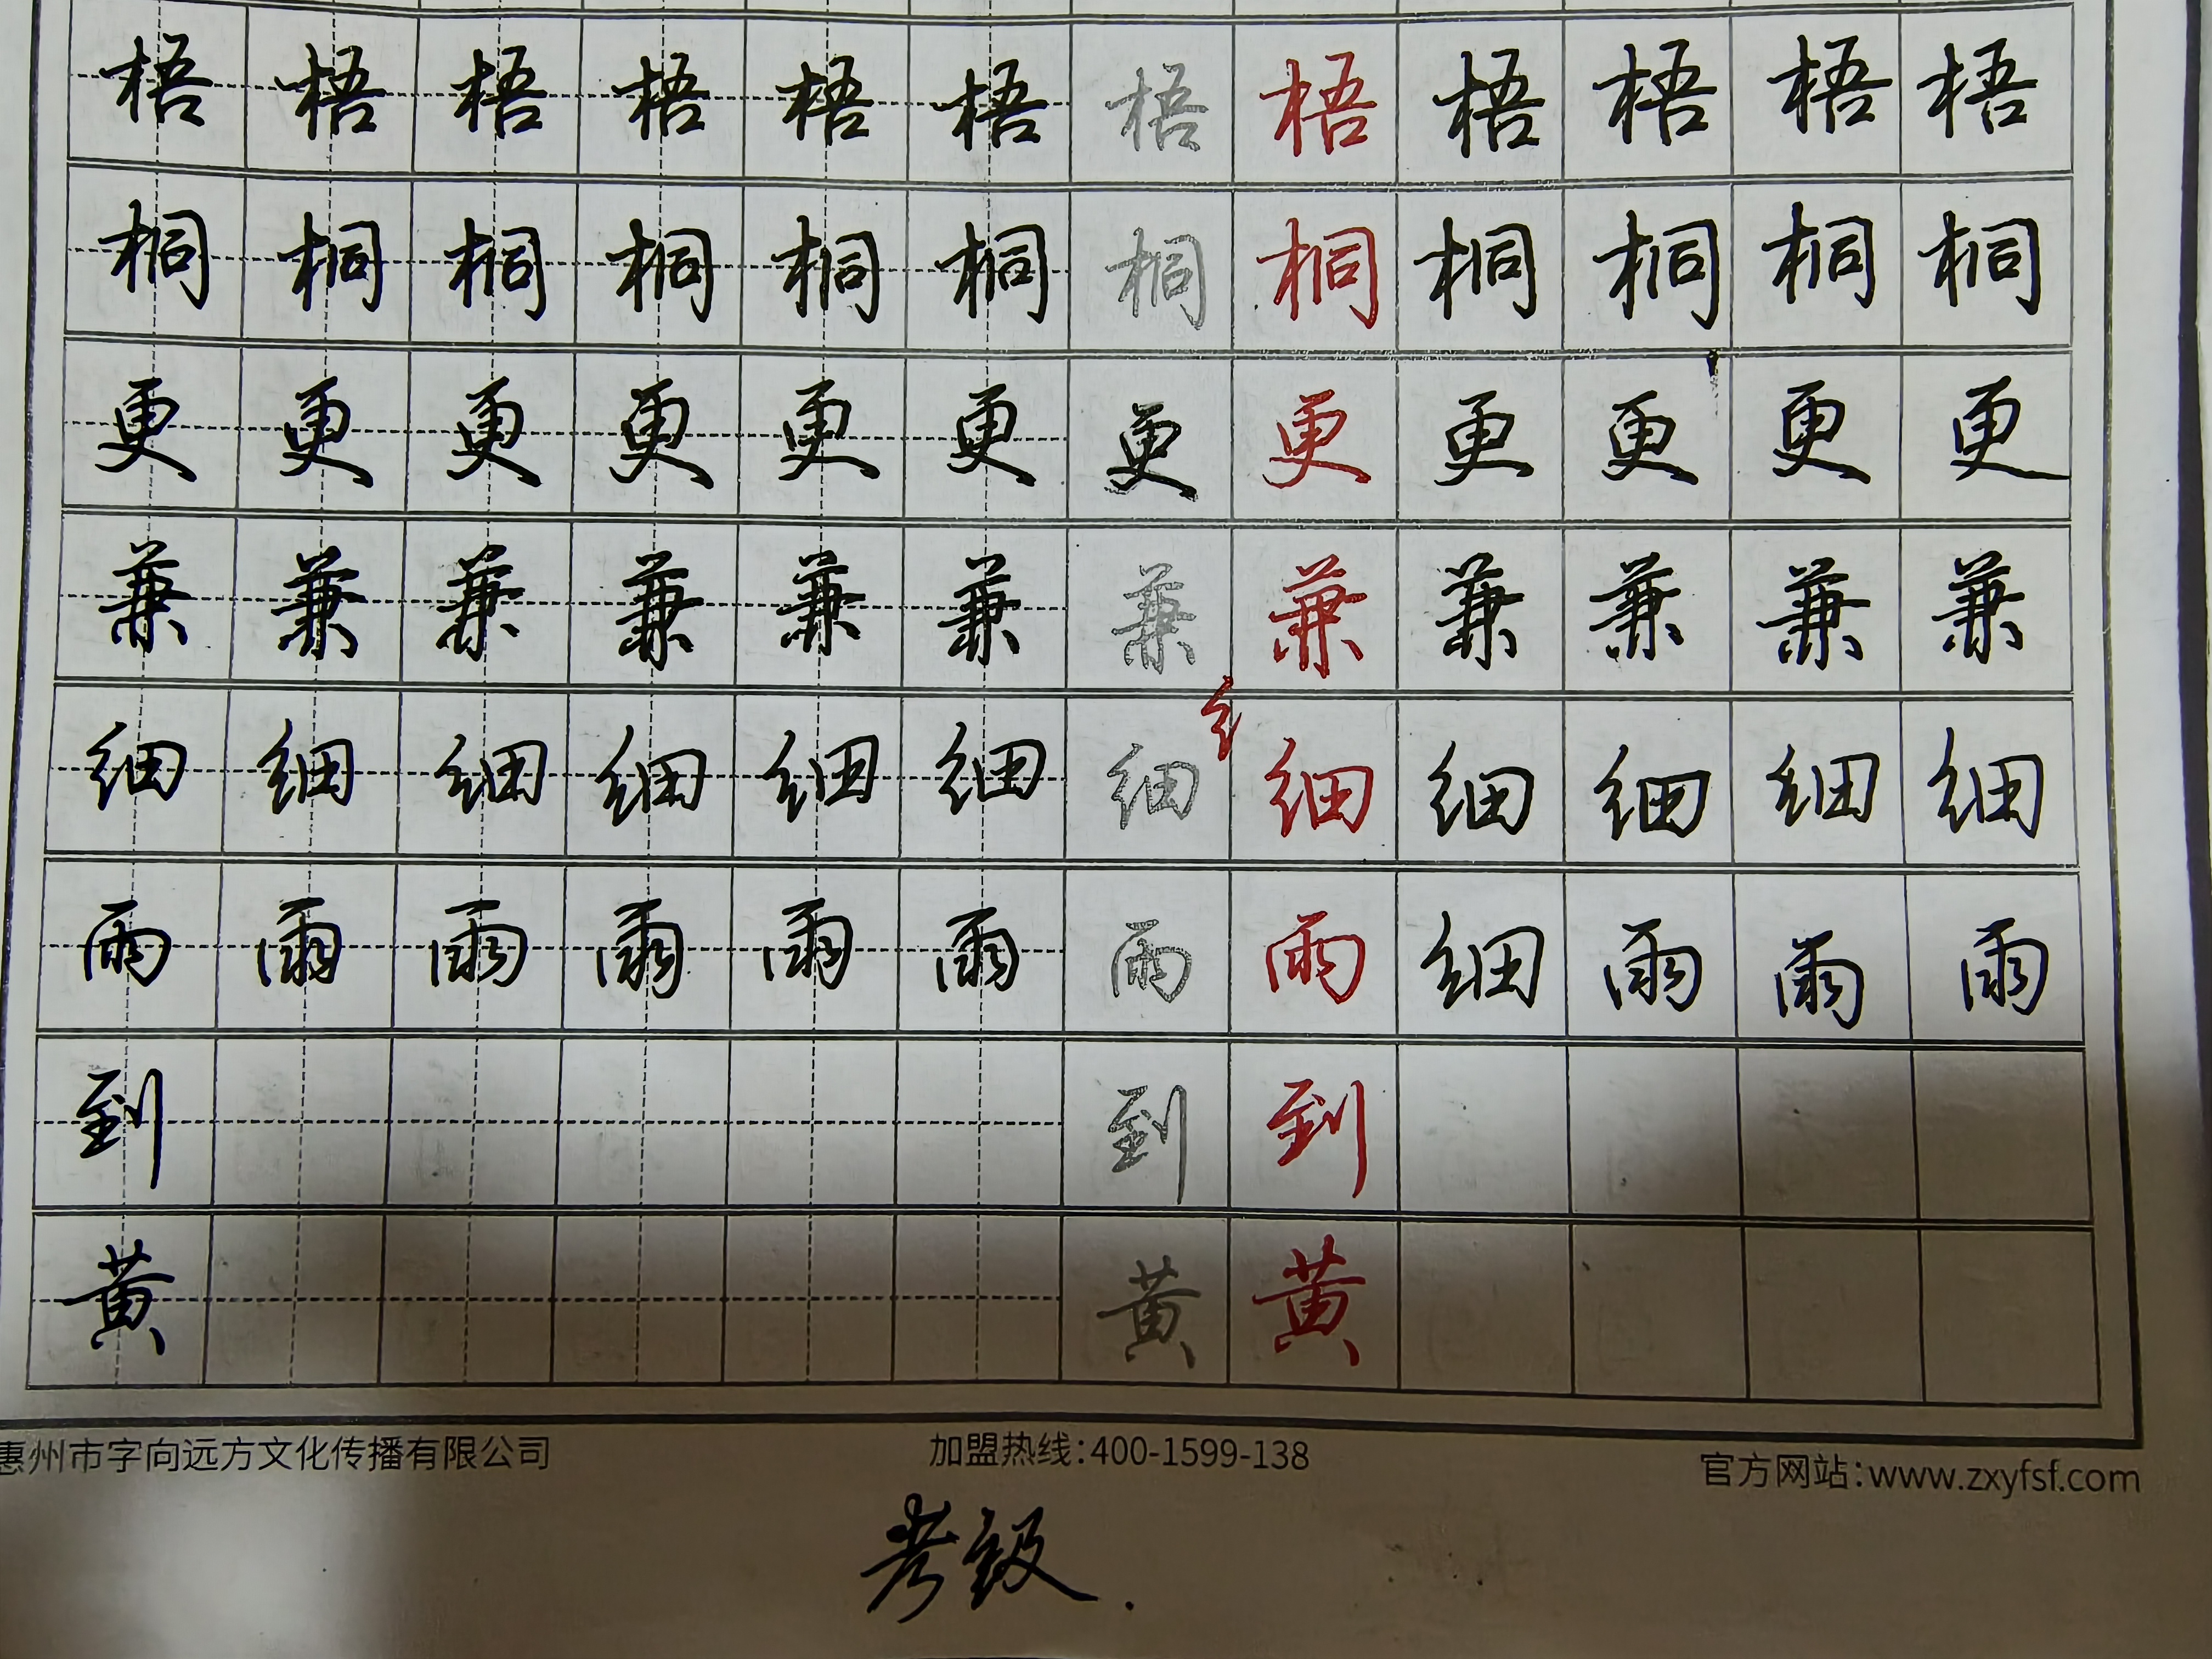 梧梧梧梧梧梧梧梧梧梧梧梧
桐桐桐桐桐桐桐桐桐桐桐桐
更更更更更更更更更更更更
兼兼兼兼兼兼兼兼兼兼兼兼
纟
细细细细细细细细细细细细
雨雨雨雨雨雨雨雨细雨雨雨
到到到
黄黄黄
惠州市字向远方文化传播有限公司 加盟热线:400-1599-138 官方网站:www.zxyfsf.com
考级.